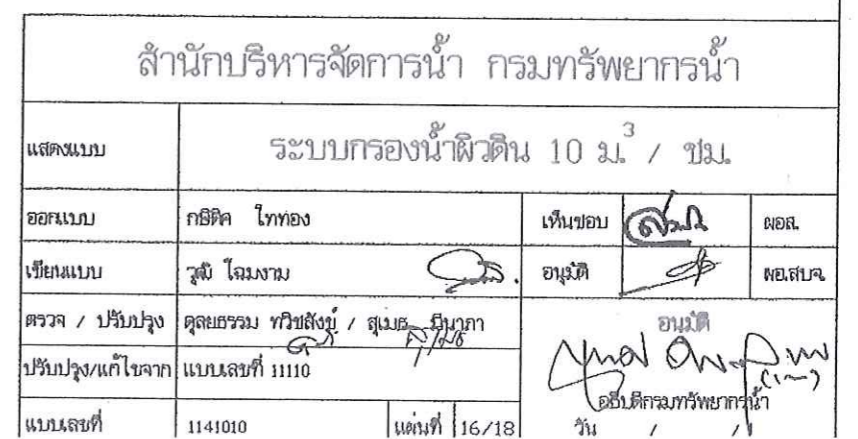 สำนักบริหารจัดการน้ำ กรมทรัพยากรน้ำ
แสดงแบบ ระบบกรองน้ำผิวดิน 10 ม.³ / ชม.
ออกแบบ กษิดิศ ไททอง เห็นชอบ ผอส.
เขียนแบบ วุฒิ โฉมงาม อนุมัติ ผอ.สบจ.
ตรวจ / ปรับปรุง ดุลยธรรม ทวิชสังข์ / สุเมธ มีนาภา อนุมัติ
ปรับปรุง/แก้ไขจาก แบบเลขที่ 11110
อธิบดีกรมทรัพยากรน้ำ
แบบเลขที่ 1141010 แผ่นที่ 16/18 วัน / /